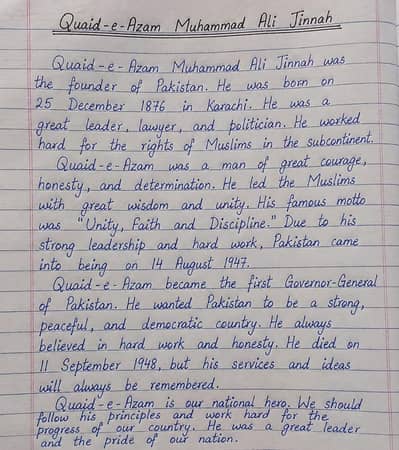 Quaid-e-Azam Muhammad Ali Jinnah
Quaid-e-Azam Muhammad Ali Jinnah was
the founder of Pakistan. He was born on
25 December 1876 in Karachi. He was a
great leader, lawyer, and politician. He worked
hard for the rights of Muslims in the subcontinent.
Quaid-e-Azam was a man of great courage,
honesty, and determination. He led the Muslims
with great wisdom and unity. His famous motto
was "Unity, Faith and Discipline." Due to his
strong leadership and hard work, Pakistan came
into being on 14 August 1947.
Quaid-e-Azam became the first Governor-General
of Pakistan. He wanted Pakistan to be a strong,
peaceful, and democratic country. He always
believed in hard work and honesty. He died on
11 September 1948, but his services and ideas
will always be remembered.
Quaid-e-Azam is our national hero. We should
follow his principles and work hard for the
progress of our country. He was a great leader
and the pride of our nation.